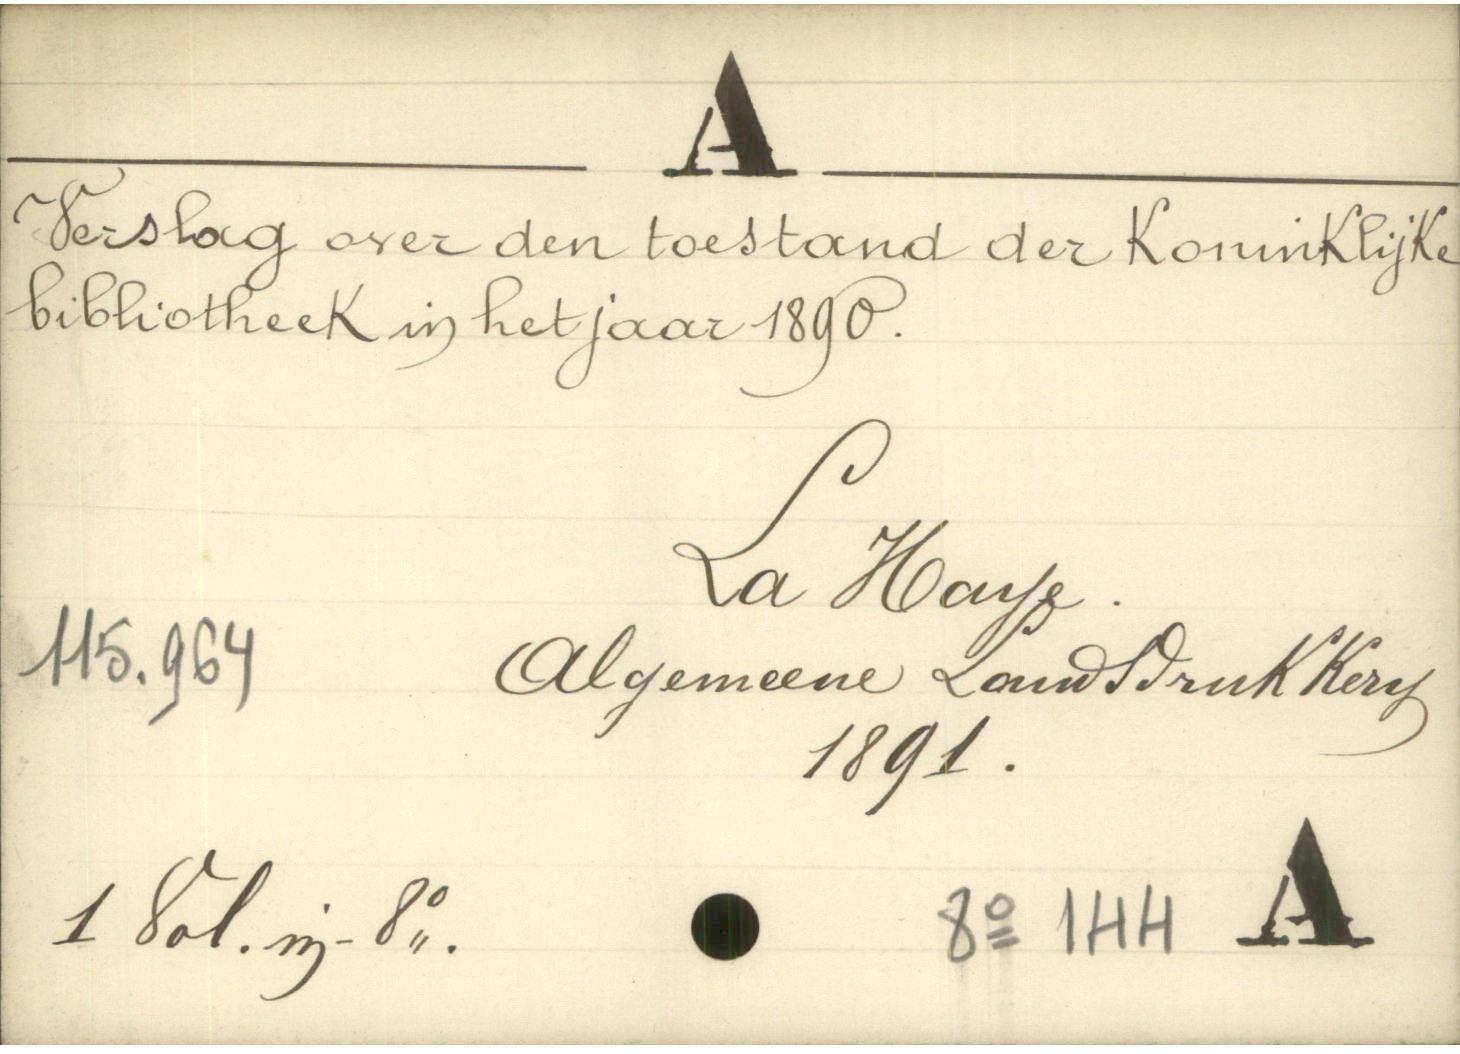 A
Verslag over den toestand der Koninklijke
bibliotheek in het jaar 1890.
La Haye.
115.964
Algemeene LandsDrukkery
1891.
1 Vol. in-8°.
8º 144 A